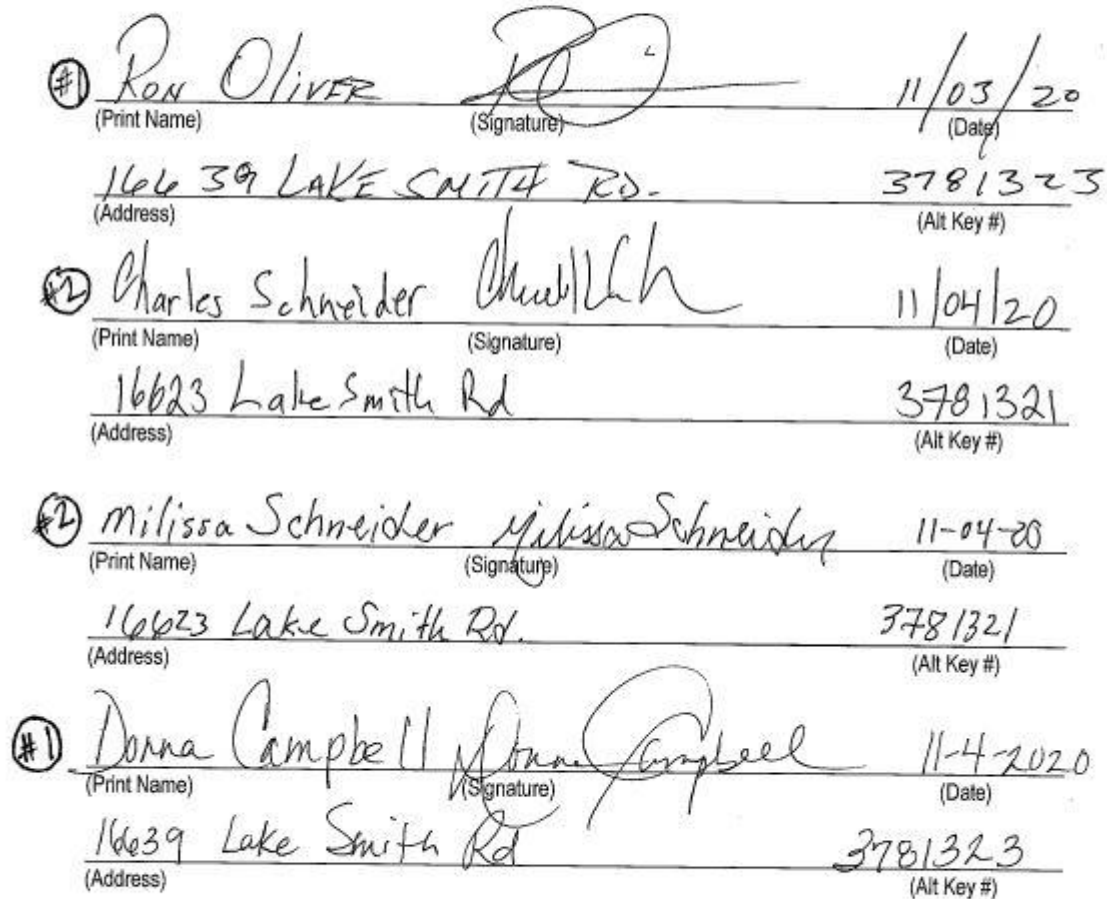 #1 Ron Oliver 11/03/20
(Print Name) (Signature) (Date)
16639 LAKE SMITH RD. 3781323
(Address) (Alt Key #)
#2 Charles Schneider 11/04/20
(Print Name) (Signature) (Date)
16623 Lake Smith Rd 3781321
(Address) (Alt Key #)
#2 Milissa Schneider Milissa Schneider 11-04-20
(Print Name) (Signature) (Date)
16623 Lake Smith Rd. 3781321
(Address) (Alt Key #)
#1 Donna Campbell Donna Campbell 11-4-2020
(Print Name) (Signature) (Date)
16639 Lake Smith Rd 3781323
(Address) (Alt Key #)